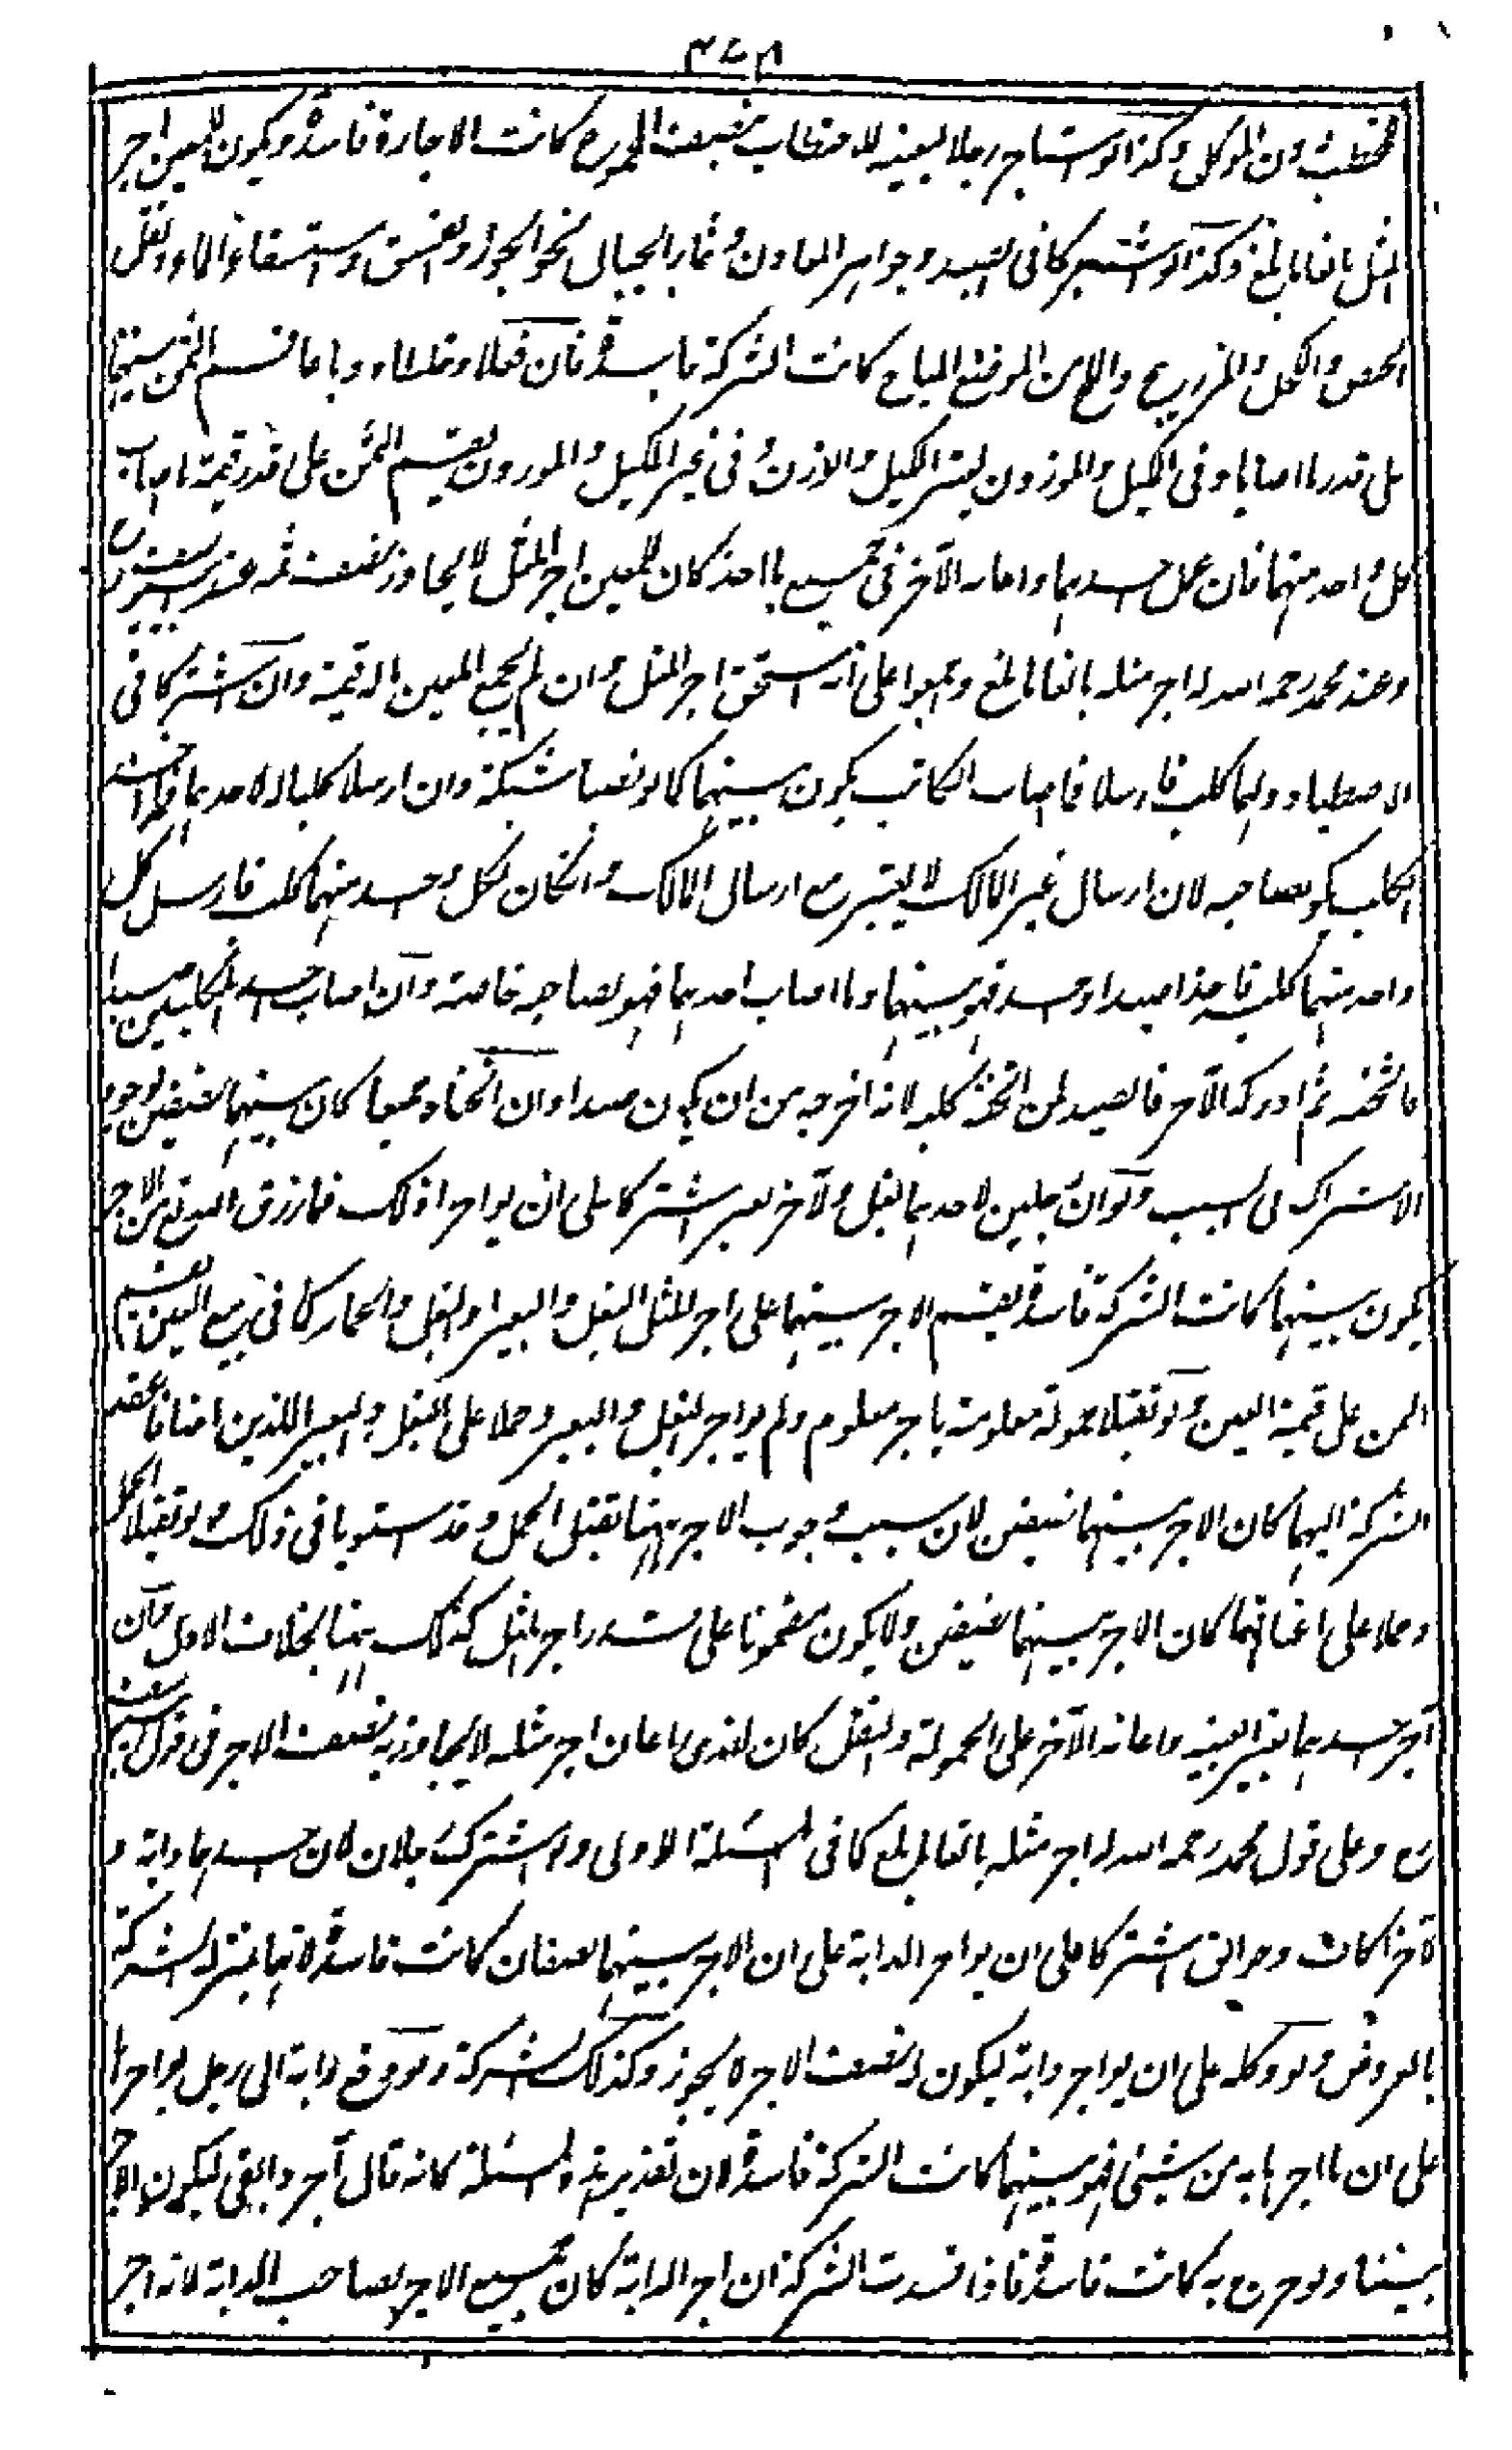 المحتطب دون الموكل وكذا لو استاجر رجلا بعينه للاحتطاب بنصف المجموع كانت الاجارة فاسدة ويكون للمعين اجر
المثل بالغا ما بلغ وكذا لو اشتركا فى الصيد وجواهر المعادن وثمار الجبال نحو الجوز والفستق واستقاء الماء ونقل
الجص والكحل والزرنيخ والملح من الموضع المباح كانت الشركة فاسدة فان فعلا وخلطاه وباعا قسم الثمن بينهما
على قدر ما اصابا وفى الكيل والموزون يعتبر الكيل والوزن وفى غير المكيل والموزون يقسم الثمن على قدر قيمة ما اصاب
كل واحد منهما فان عمل احدهما واعانه الآخر فى جميع ما اخذ كان للمعين اجر المثل لا يجاوز نصف ثمنه عند ابى يوسف رح
وعند محمد رحمه الله له اجر مثله بالغا ما بلغ واجمعوا على انه استحق اجر المثل وان لم يجمع المعين ماله قيمة وان اشتركا فى
الاصطياد ولهما كلب فارسلا فما اصاب الكلب يكون بينهما كما لو نصبا شبكة وان ارسلا كلبا لاحدهما فما اخذه
الكلب يكون لصاحبه لان ارسال غير المالك لا يعتبر مع ارسال المالك وان كان لكل واحد منهما كلب فارسل كل
واحد منهما كلبه فاخذا صيدا واحدا فهو بينهما وما اصاب احدهما فهو لصاحبه خاصة وان اصاب احد الكلبين صيدا
فاثخنه ثم ادركه الآخر فالصيد لمن اثخنه كلبه لانه اخرجه من ان يكون صيدا وان اثخناه جميعا كان بينهما نصفين لوجود
الاشتراك فى السبب ولو ان رجلين لاحدهما بغل وللآخر بعير اشتركا على ان يواجرا ذلك فما رزق الله تعالى من الاجر
يكون بينهما كانت الشركة فاسدة يقسم الاجر بينهما على اجر المثل البغل والبعير او البغل والحمار كما فى بيع العين يقسم
الثمن على قيمة العين ولو تقبلا حمولة معلومة باجر معلوم ولم يواجر البغل والبعير وحملا على البغل والبعير اللذين اضافا عقد
الشركة اليهما كان الاجر بينهما نصفين لان سبب وجوب الاجر ههنا تقبل الحمل وقد استويا فى ذلك ولو تقبلا الحمل
وحملا على اعناقهما كان الاجر بينهما نصفين ولا يكون مضمونا على قدر اجر المثل كذلك ههنا بخلاف الاول وان
آجر احدهما بعير العينه واعانه الآخر على الحمولة والنقل كان للذى اعان اجر مثله لا يجاوز به نصف الاجر فى قول ابى يوسف
رح وعلى قول محمد رحمه الله له اجر مثله بالغا ما بلغ كما فى المسئلة الاولى ولو اشترك رجلان لان احدهما دابة و
للآخر اكاف وجوالق اشتركا على ان يواجرا الدابة على ان الاجر بينهما نصفان كانت فاسدة لانها بمنزلة الشركة
بالعروض ولو وكله على ان يواجر دابة ليكون له نصف الاجر لا يجوز وكذلك الشركة ولو دفع دابة الى رجل يواجرها
على ان ما اجرها به من شيئ فهو بينهما كانت الشركة فاسدة لان تقدير هذه المسئلة كانه قال آجر دابتى ليكون الاجر
بيننا ولو صرح به كانت فاسدة فاذا فسدت الشركة ان اجر الدابة كان جميع الاجر لصاحب الدابة لانه اجر